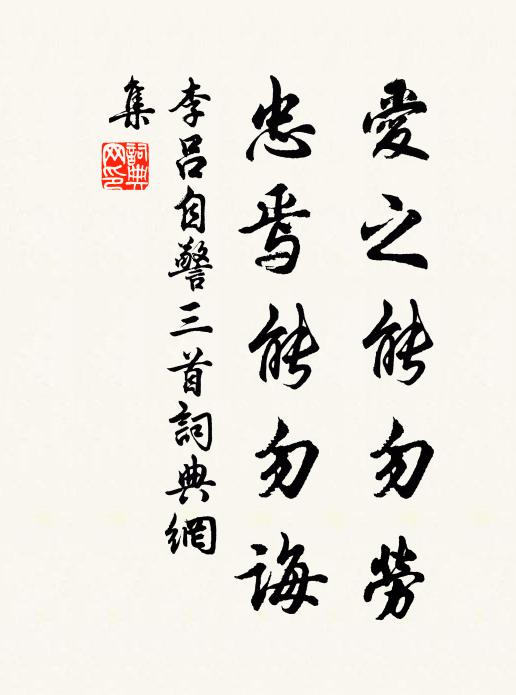 愛之能勿勞
忠焉能勿誨
李呂自警三首詞典網
集
詞典網印